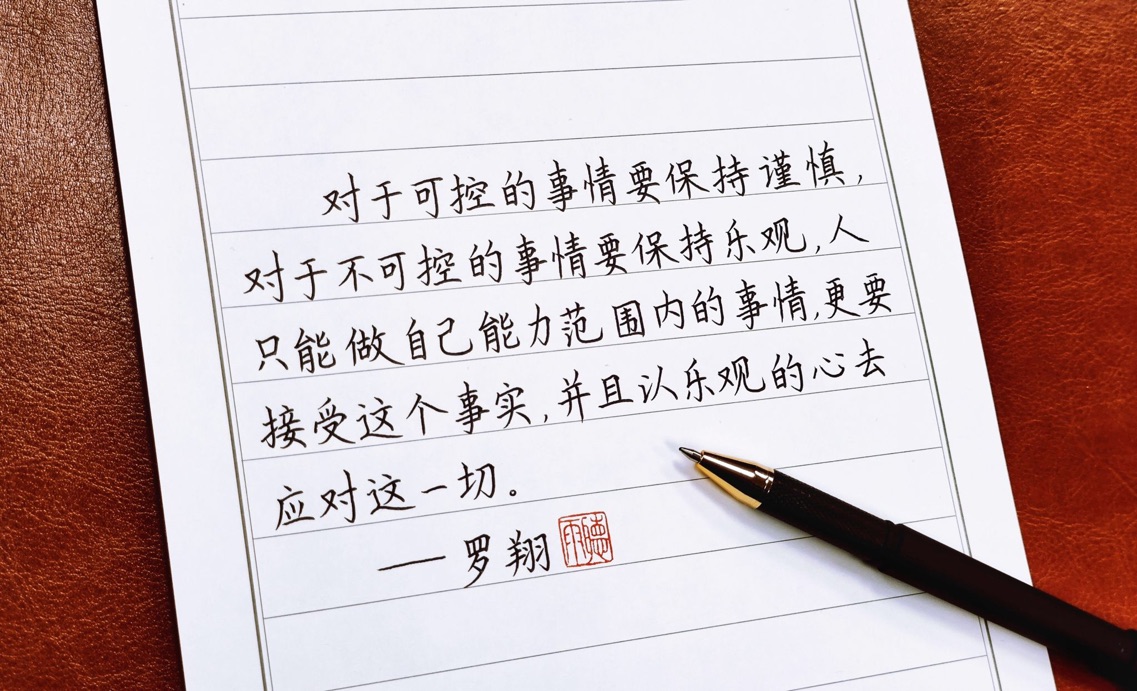 对于可控的事情要保持谨慎,
对于不可控的事情要保持乐观,人
只能做自己能力范围内的事情,更要
接受这个事实,并且认乐观的心去
应对这一切。
——罗翔